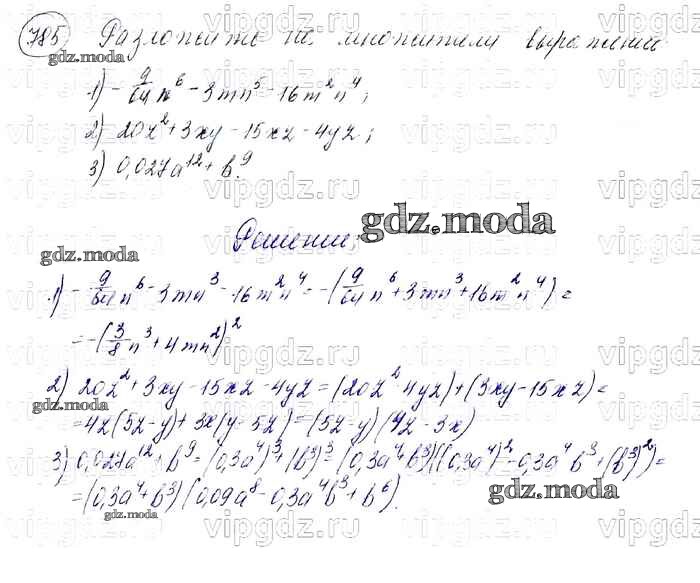 785 Разложить на множители выражение
1) - 9/64 n^6 - 3mn^5 - 16m^2n^4;
2) 20z^2 + 3xy - 15xz - 4yz;
3) 0,027a^12 + b^9.
gdz.moda
Решение;
gdz.moda
gdz.moda
1) - 9/64 n^6 - 3mn^3 - 16m^2n^4 = -(9/64 n^6 + 3mn^3 + 16m^2n^4) =
= -(3/8 n^3 + 4mn^2)^2
2) 20z^2 + 3xy - 15xz - 4yz = (20z^2 4yz) + (3xy - 15xz) =
= 4z(5z - y) + 3x(y - 5z) = (5z - y)(4z - 3x)
3) 0,027a^12 + b^9 = (0,3a^4)^3 + (b^3)^3 = (0,3a^4 + b^3)((0,3a^4)^2 - 0,3a^4 b^3 + (b^3)^2) =
= (0,3a^4 + b^3)(0,09a^8 - 0,3a^4b^3 + b^6).
gdz.moda
gdz.moda
gdz.moda